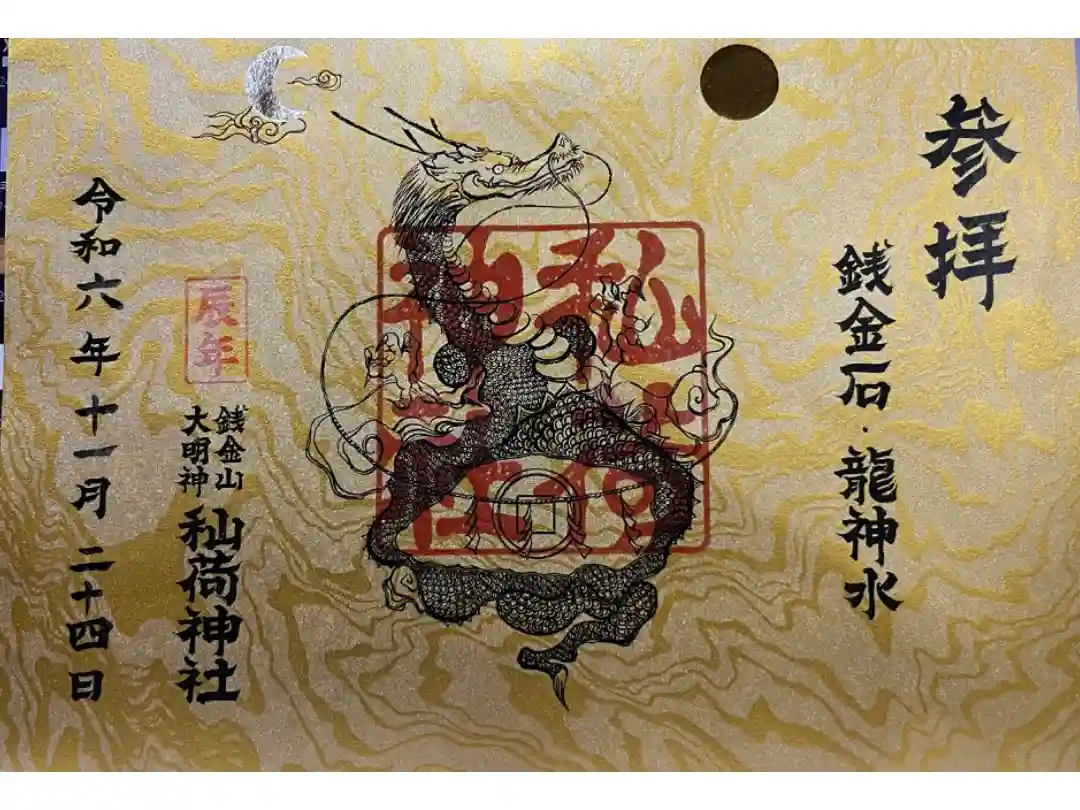 参拝
銭金石・龍神水
銭金山
大明神
秈荷神社
辰年
令和六年十一月二十四日